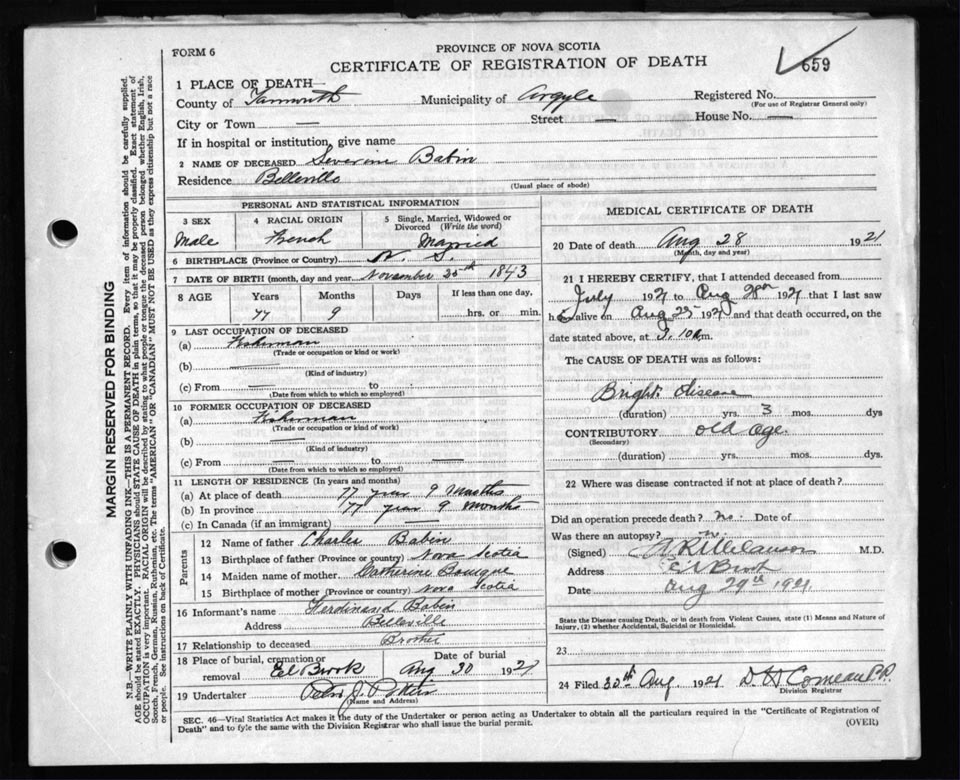 FORM 6
PROVINCE OF NOVA SCOTIA
CERTIFICATE OF REGISTRATION OF DEATH
659
1 PLACE OF DEATH—
County of Yarmouth Municipality of Argyle Registered No.
(For use of Registrar General only)
City or Town — Street — House No. —
If in hospital or institution, give name
2 NAME OF DECEASED Severin Babin
Residence Belleville
(Usual place of abode)
PERSONAL AND STATISTICAL INFORMATION
3 SEX
Male
4 RACIAL ORIGIN
French
5 Single, Married, Widowed or Divorced (Write the word)
Married
6 BIRTHPLACE (Province or Country) N. S.
7 DATE OF BIRTH (month, day and year) November 25th 1843
8 AGE Years Months Days If less than one day,
77 9 hrs. or min.
9 LAST OCCUPATION OF DECEASED
(a) Fisherman
(Trade or occupation or kind or work)
(b) —
(Kind of industry)
(c) From — to —
(Date from which to which so employed)
10 FORMER OCCUPATION OF DECEASED
(a) Fisherman
(Trade or occupation or kind or work)
(b) —
(Kind of industry)
(c) From — to —
(Date from which to which so employed)
11 LENGTH OF RESIDENCE (In years and months)
(a) At place of death 77 year 9 Months
(b) In province 77 year 9 months
(c) In Canada (if an immigrant) —
Parents
12 Name of father Charles Babin
13 Birthplace of father (Province or country) Nova Scotia
14 Maiden name of mother Catherine Bourque
15 Birthplace of mother (Province or country) Nova Scotia
16 Informant's name Ferdinand Babin
Address Belleville
17 Relationship to deceased Brother
18 Place of burial, cremation or removal Eel Brook
Date of burial Aug 30 1921
19 Undertaker Peter J. Potier
(Name and Address)
MEDICAL CERTIFICATE OF DEATH
20 Date of death Aug 28 1921
(Month, day and year)
21 I HEREBY CERTIFY, that I attended deceased from
July 1921 to Aug 1921 that I last saw
h alive on Aug 25 192 and that death occurred, on
date stated above, at 3.10 m.
The CAUSE OF DEATH was as follows:
Brights disease
(duration) yrs. 3 mos. dys
CONTRIBUTORY old age.
(Secondary)
(duration) yrs. mos. dys.
22 Where was disease contracted if not at place of death?
Did an operation precede death? No. Date of
Was there an autopsy?
(Signed) M.D.
Address
Date Aug 29th 1921
State the Disease causing Death, or in death from Violent Causes, state (1) Means and Nature of
Injury, (2) whether Accidental, Suicidal or Homicidal.
23
24 Filed 30th Aug. 1921 D. H Comeau P.P.
Division Registrar
SEC. 46—Vital Statistics Act makes it the duty of the Undertaker or person acting as Undertaker to obtain all the particulars required in the "Certificate of Registration of
Death" and to fyle the same with the Division Registrar who shall issue the burial permit.
(OVER)
MARGIN RESERVED FOR BINDING
N.B.—WRITE PLAINLY WITH UNFADING INK—THIS IS A PERMANENT RECORD. Every item of information should be carefully supplied.
AGE should be stated EXACTLY. PHYSICIANS should STATE CAUSE OF DEATH in plain terms, so that it may be properly classified. Exact statement of
OCCUPATION is very important. RACIAL ORIGIN will be described by stating to what people or tongue the deceased person belonged whether English, Irish,
Scotch, French, German, Russian, Ruthenian, etc. The terms "AMERICAN" OR "CANADIAN" MUST NOT BE USED as they express citizenship but not a race
or people. See instructions on back of Certificate.